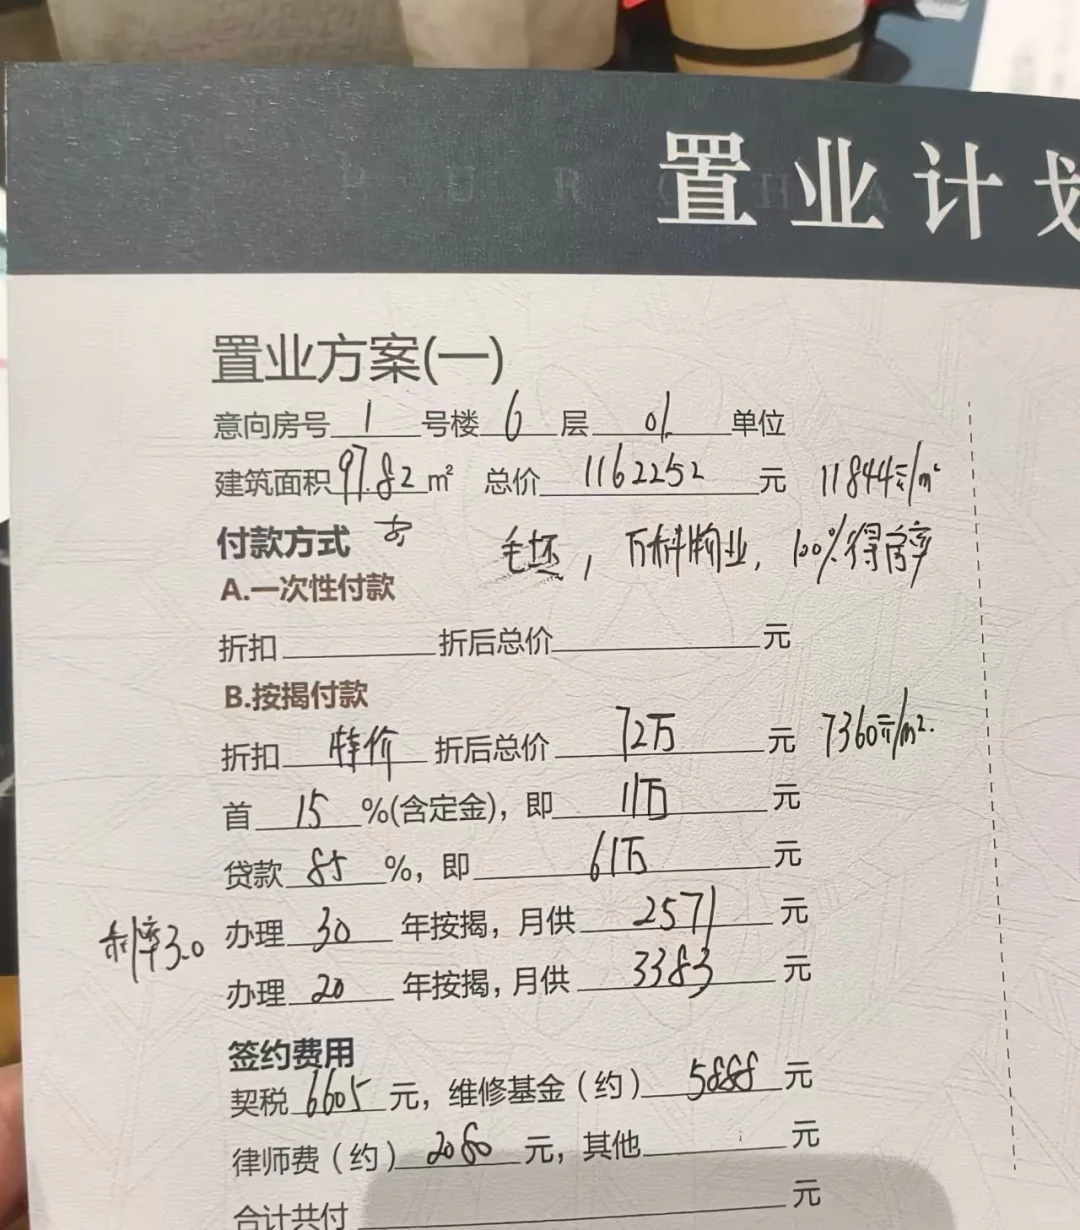 置业计划
置业方案(一)
意向房号 1 号楼 6 层 01 单位
建筑面积 97.82 m² 总价 1162252 元 11844元/m²
付款方式
毛坯, 万科物业, 100%得房率
A.一次性付款
折扣 折后总价 元
B.按揭付款
折扣 特价 折后总价 72万 元 7360元/m².
首 15 %(含定金), 即 11万 元
贷款 85 %, 即 61万 元
利率3.0 办理 30 年按揭, 月供 2571 元
办理 20 年按揭, 月供 3383 元
签约费用
契税 6605 元, 维修基金 (约) 5888 元
律师费 (约) 2080 元, 其他 元
合计共付 元